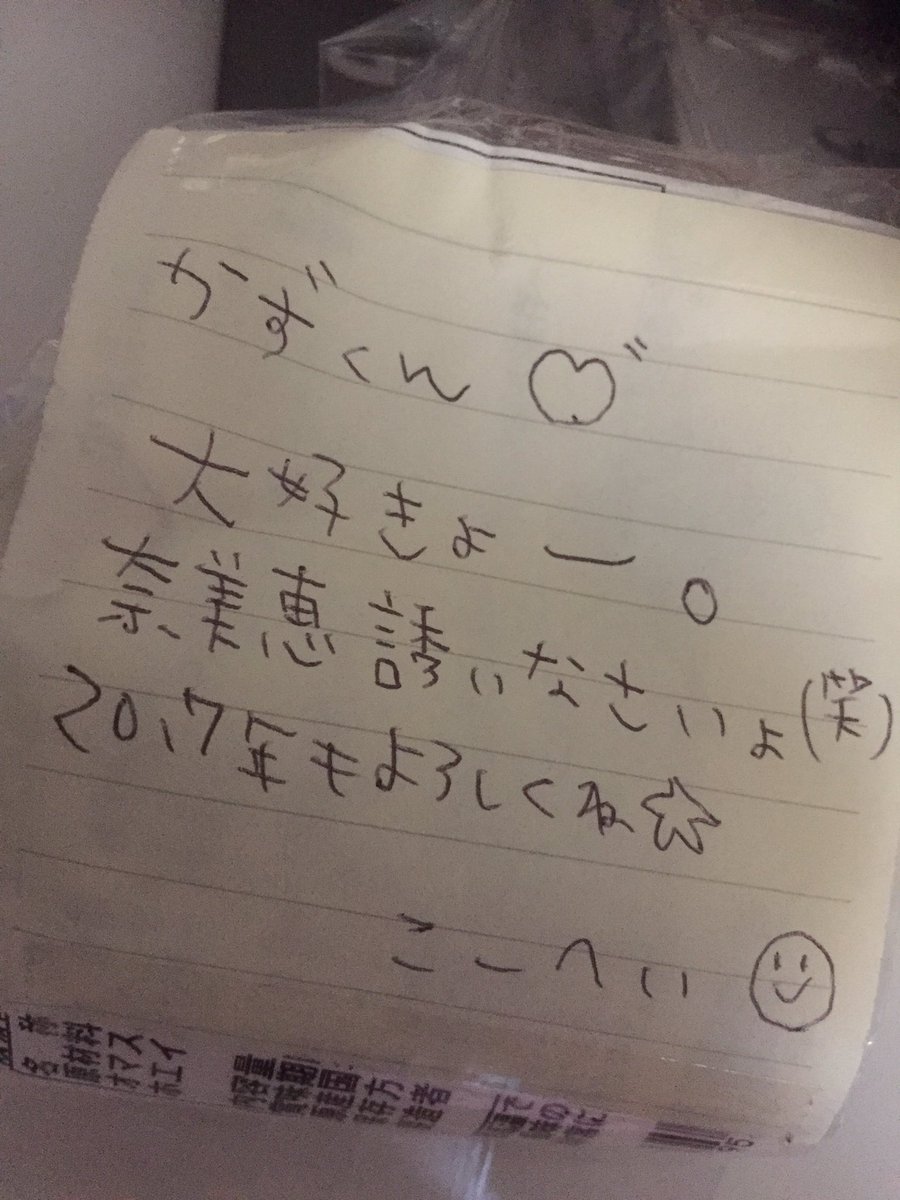 かずくん♡"
大好きよー。
奈美恵誘いなさいよ(笑)
2017年もよろしくね☆
こーへい